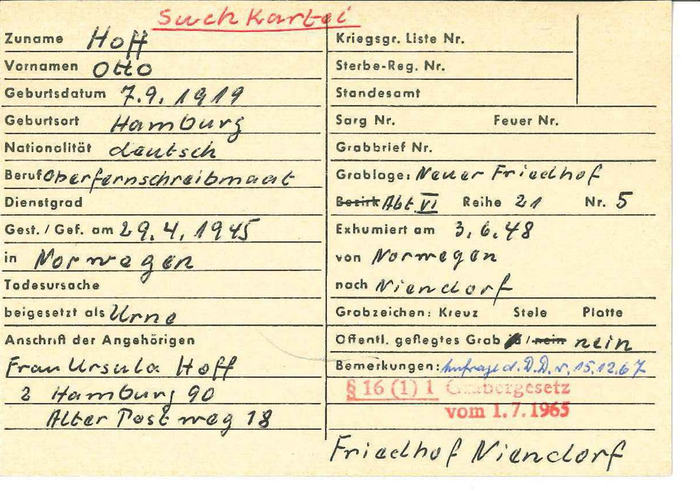 Suchkartei
Zuname Hoff
Vornamen Otto
Geburtsdatum 7.9.1919
Geburtsort Hamburg
Nationalität deutsch
Beruf Oberfernschreibmaat
Dienstgrad
Gest. / Gef. am 29.4.1945
in Norwegen
Todesursache
beigesetzt als Urne
Anschrift der Angehörigen
Frau Ursula Hoff
2 Hamburg 90
Alter Postweg 18
Kriegsgr. Liste Nr.
Sterbe-Reg. Nr.
Standesamt
Sarg Nr. Feuer Nr.
Grabbrief Nr.
Grablage: Neuer Friedhof
Bezirk Abt VI Reihe 21 Nr. 5
Exhumiert am 3.6.48
von Norwegen
nach Niendorf
Grabzeichen: Kreuz Stele Platte
Öffentl. gepflegtes Grab ja / nein nein
Bemerkungen: Anfrage d. D.D. v. 15.12.67
§ 16 (1) 1 Gräbergesetz
vom 1.7.1965
Friedhof Niendorf